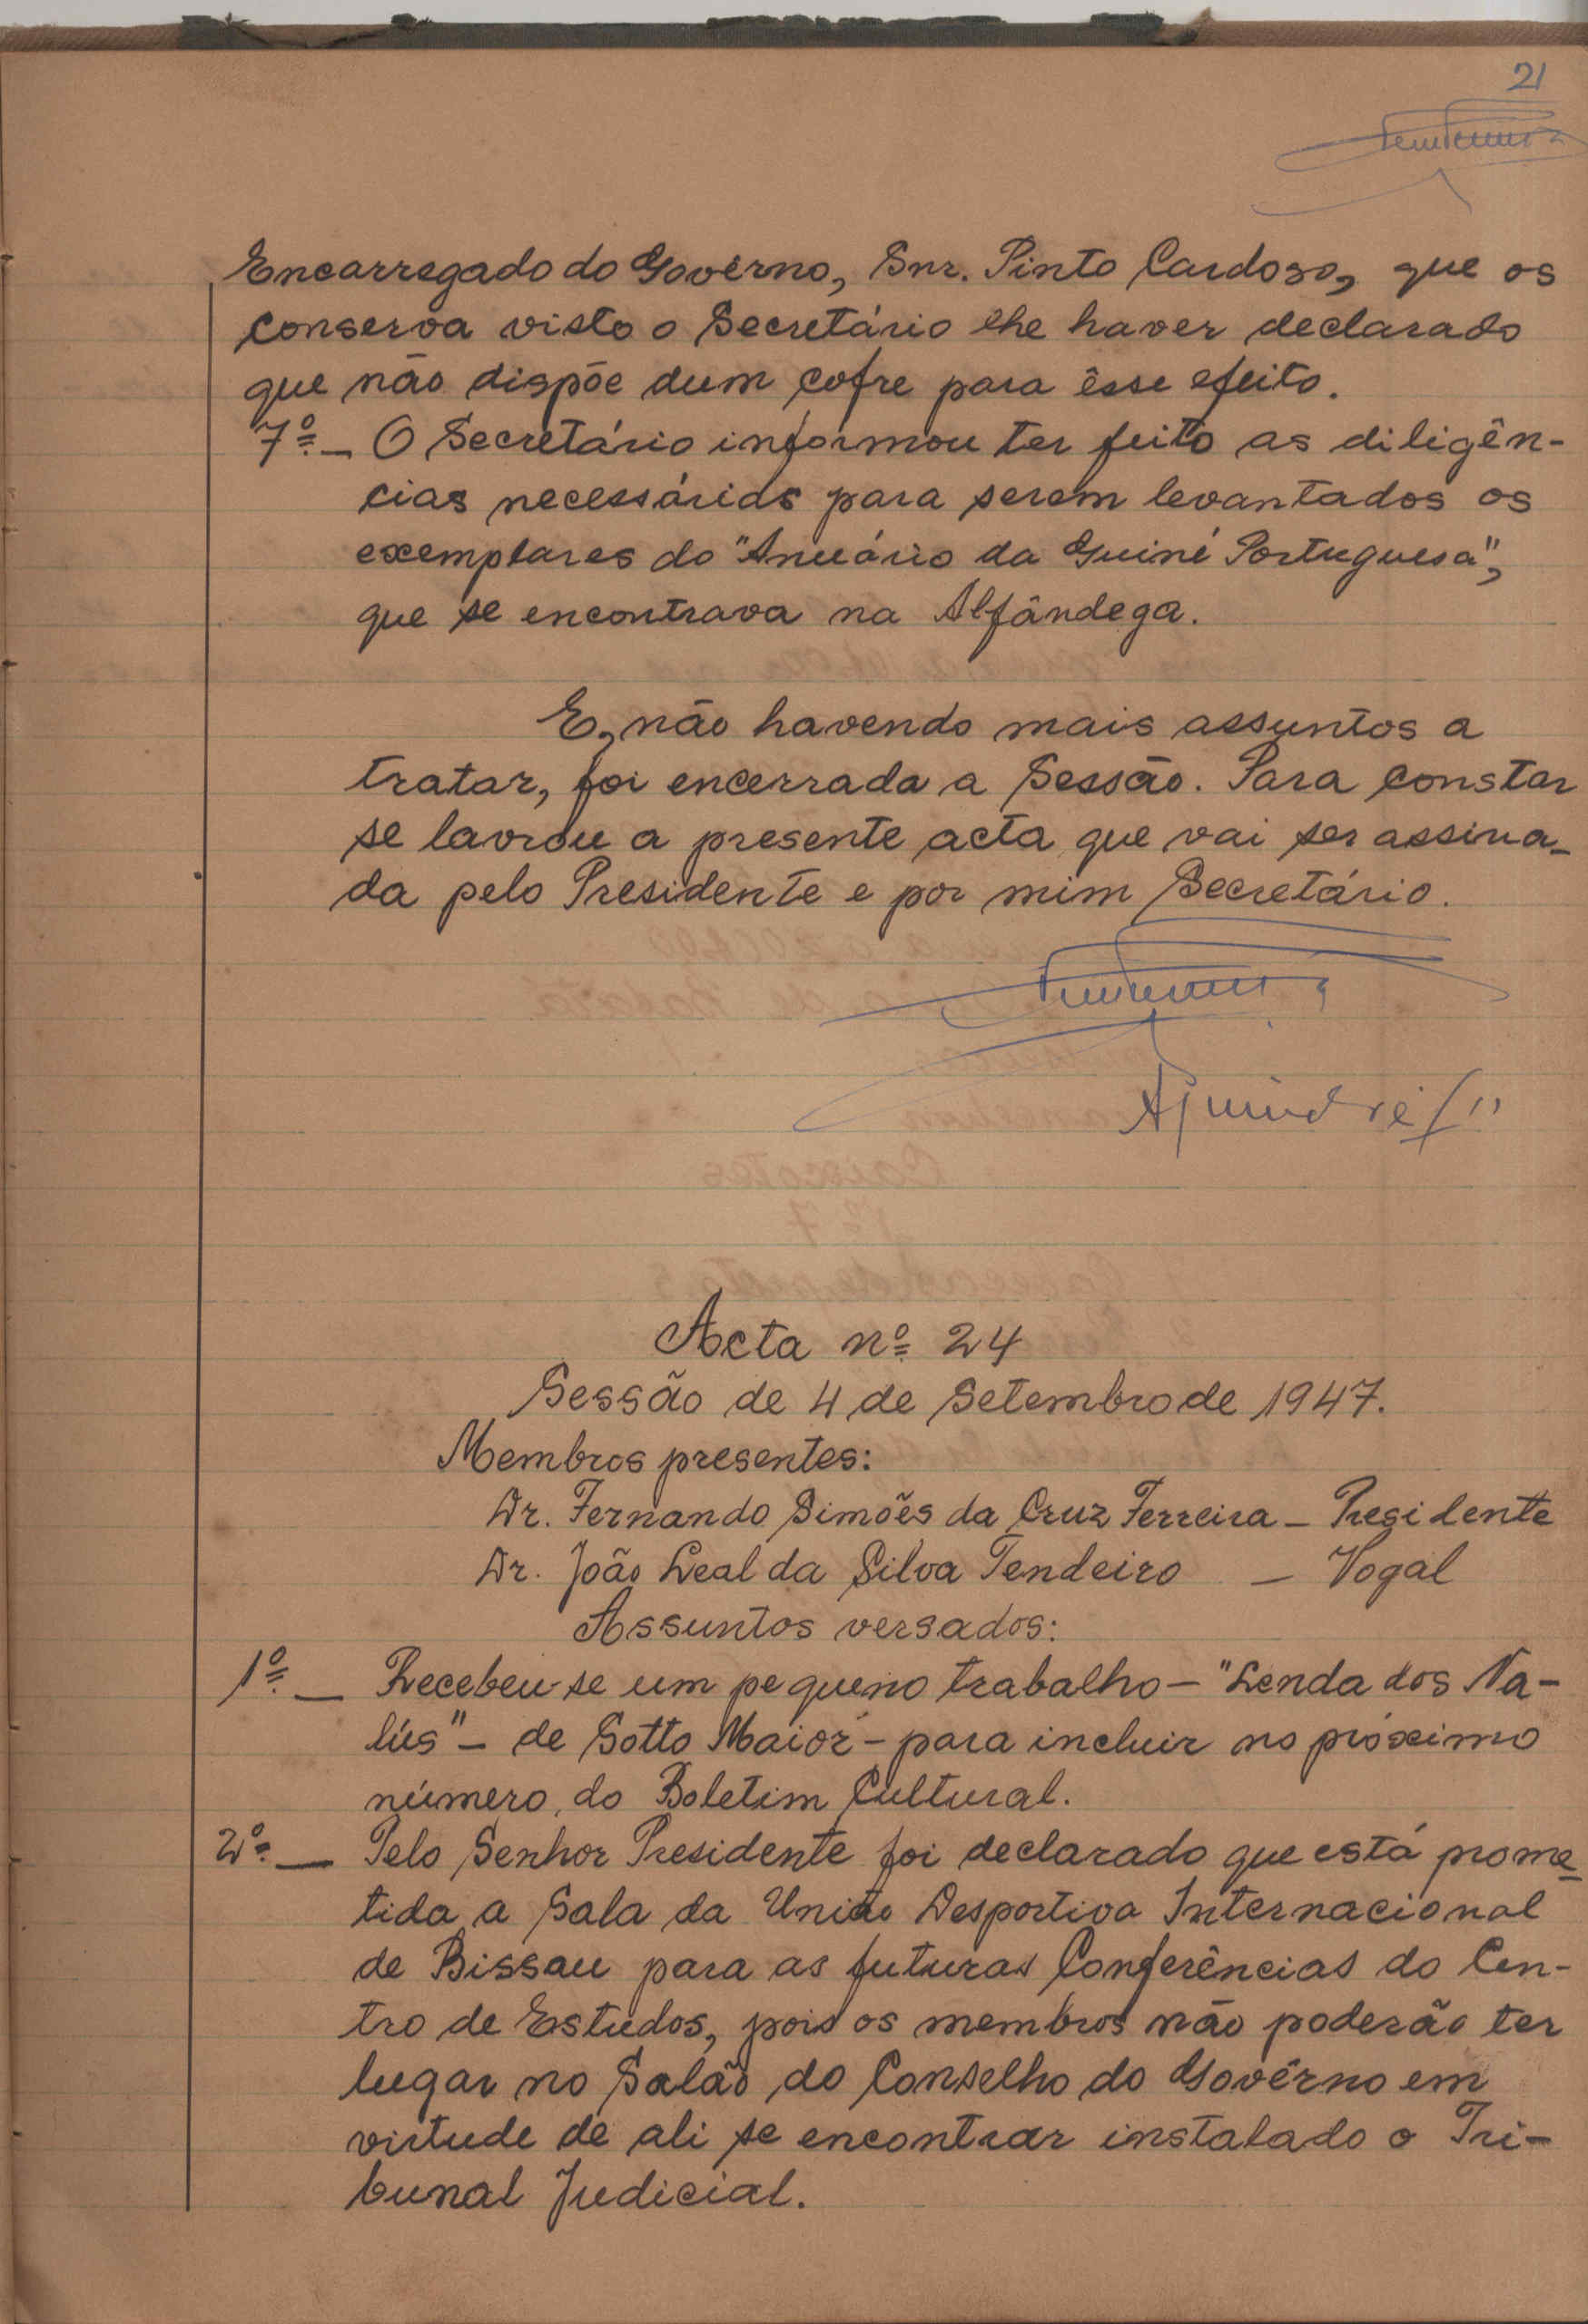 21
Encarregado do Govêrno, Snr. Pinto Cardoso, que os
conserva visto o Secretário lhe haver declarado
que não dispõe dum cofre para êsse efeito.
7º — O Secretário informou ter feito as diligên-
cias necessárias para serem levantados os
exemplares do "Anuário da Guiné Portuguesa",
que se encontrava na Alfândega.
E, não havendo mais assuntos a
tratar, foi encerrada a Sessão. Para constar
se lavrou a presente acta que vai ser assina-
da pelo Presidente e por mim Secretário.
Acta nº 24
Sessão de 4 de Setembro de 1947.
Membros presentes:
Dr. Fernando Simões da Cruz Ferreira — Presidente
Dr. João Leal da Silva Tendeiro — Vogal
Assuntos versados:
1º — Recebeu-se um pequeno trabalho — "Lenda dos Na-
lús" — de Sotto Maior — para incluir no próximo
número do Boletim Cultural.
2º — Pelo Senhor Presidente foi declarado que está prome-
tida a Sala da União Desportiva Internacional
de Bissau para as futuras Conferências do Cen-
tro de Estudos, pois os membros não poderão ter
lugar no Salão do Conselho do Govêrno em
virtude de ali se encontrar instalado o Tri-
bunal Judicial.